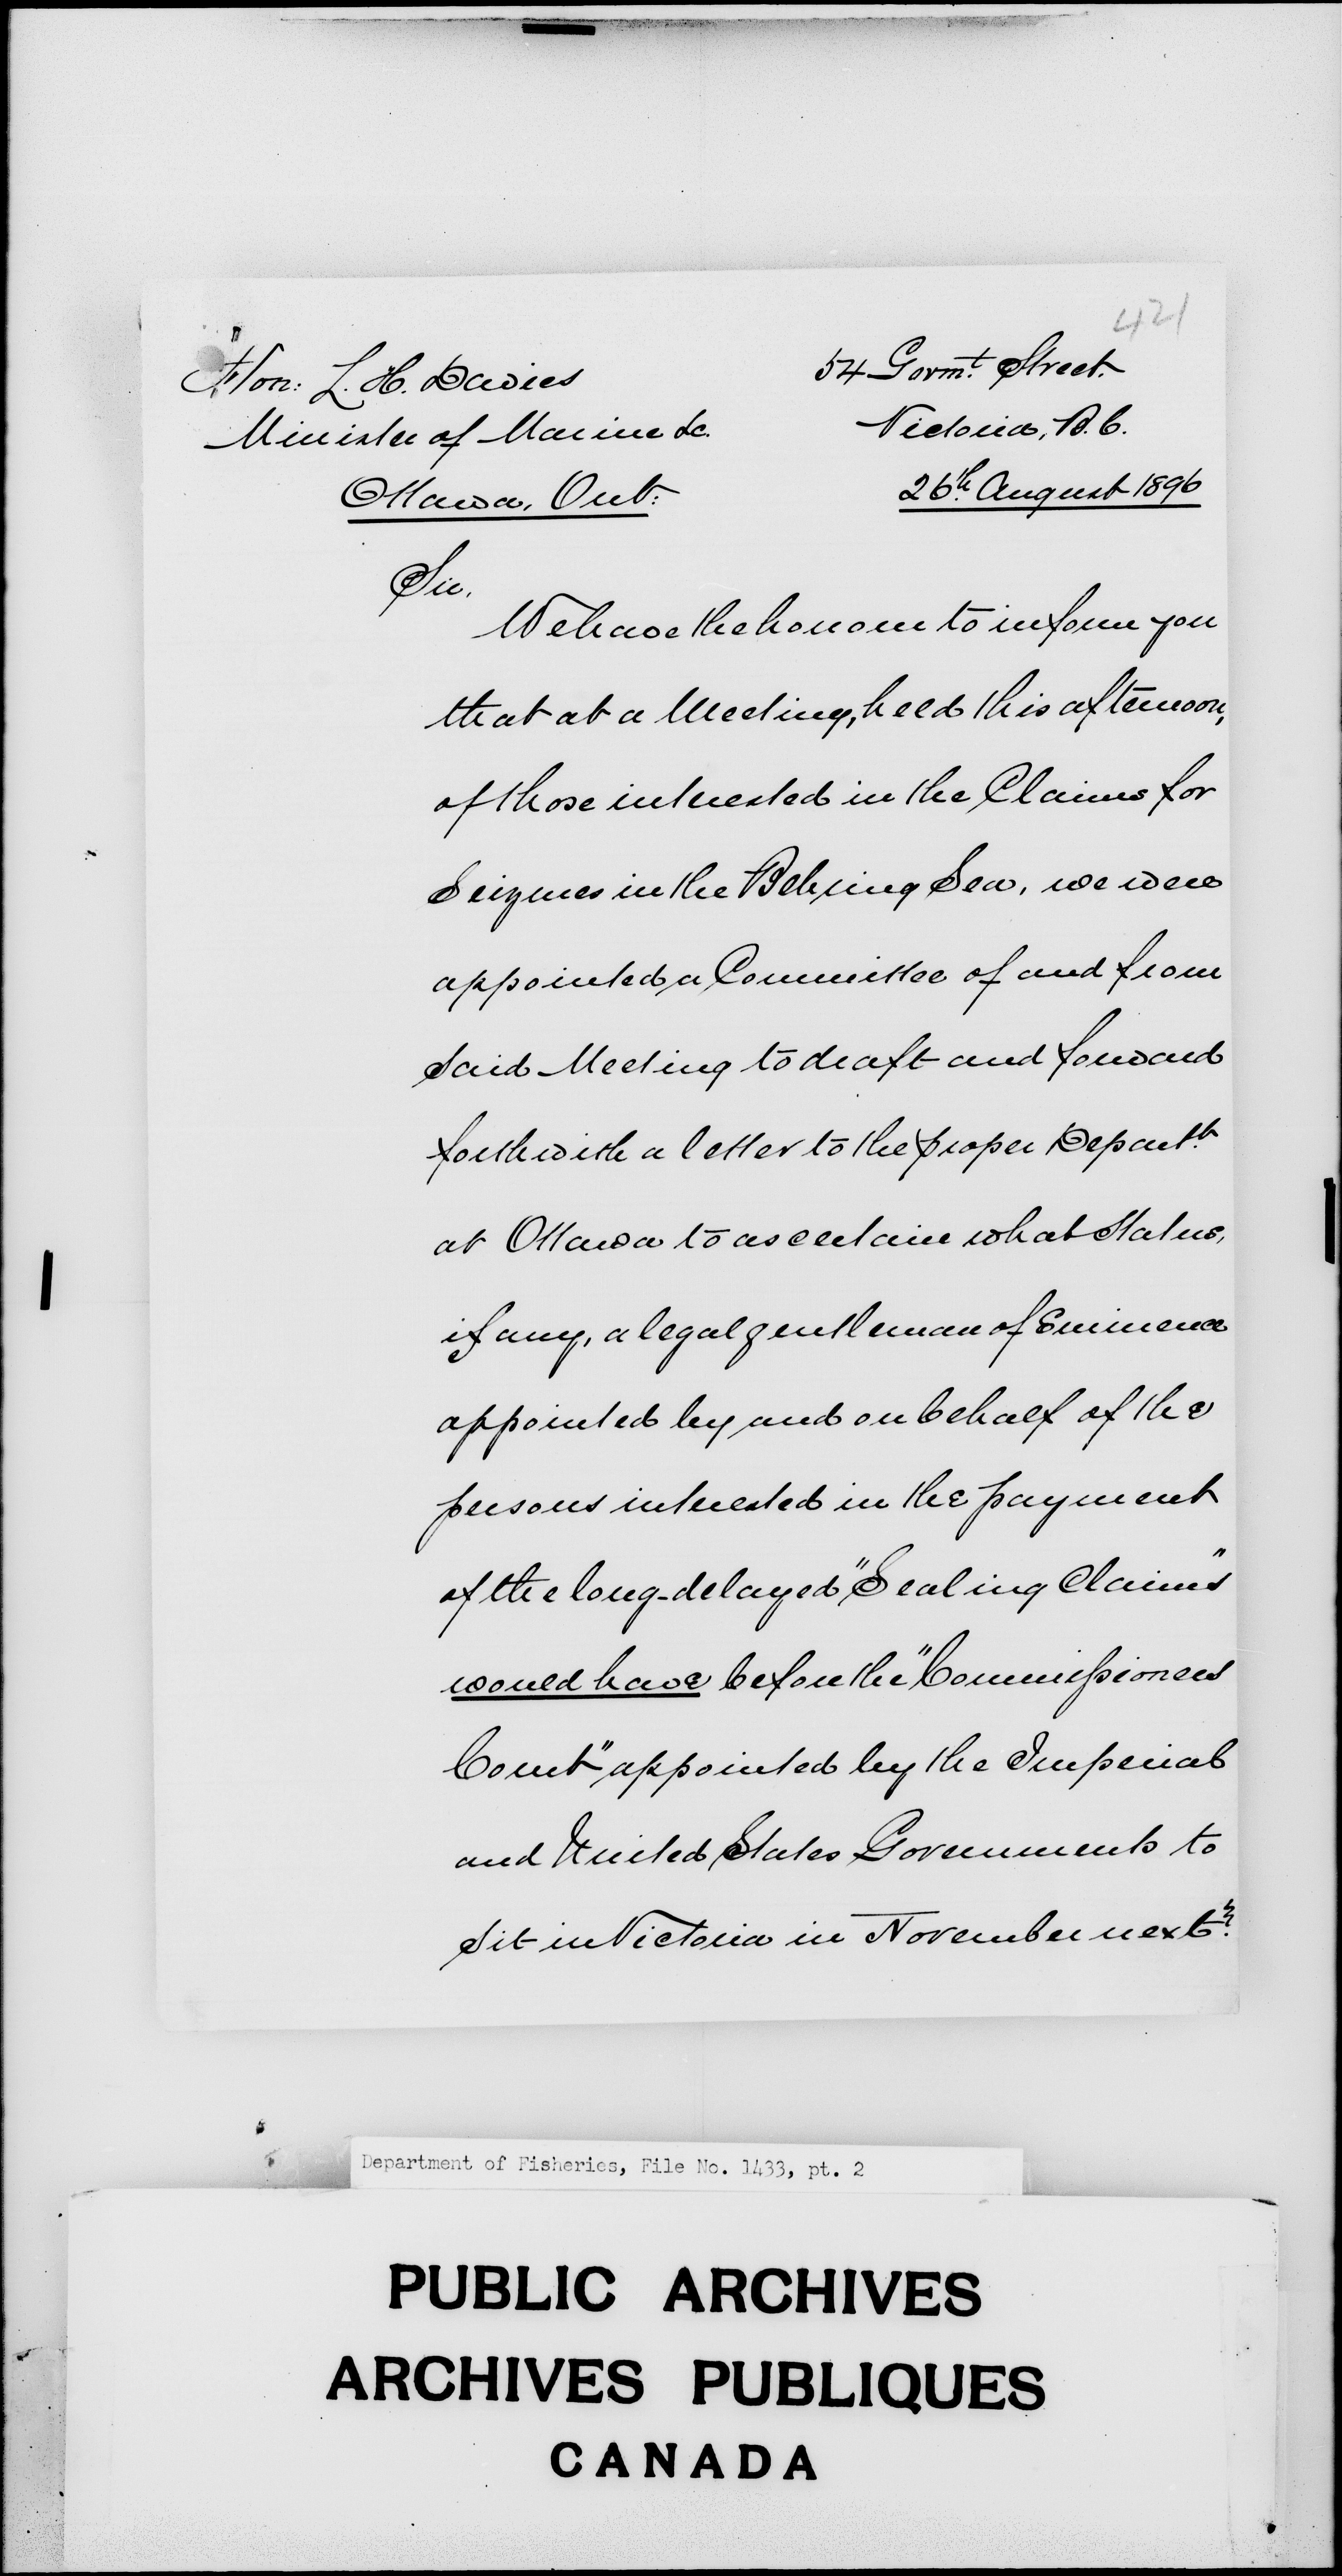 421
Hon: L. H. Davies
Minister of Marine &c.
Ottawa, Ont:
54 Govmt. Street.
Victoria, B.C.
26th. August 1896
Sir,
We have the honour to inform you
that at a Meeting, held this afternoon,
of those interested in the Claims for
Seizures in the Behring Sea, we were
appointed a Committee of and from
said Meeting to draft and forward
forthwith a letter to the proper Departt.
at Ottawa to ascertain what Status,
if any, a legal gentleman of Eminence
appointed by and on behalf of the
persons interested in the payment
of the long-delayed "Sealing Claims"
would have before the "Commissioners
Court" appointed by the Imperial
and United States Governments to
sit in Victoria in November next?
Department of Fisheries, File No. 1433, pt. 2
PUBLIC ARCHIVES
ARCHIVES PUBLIQUES
CANADA